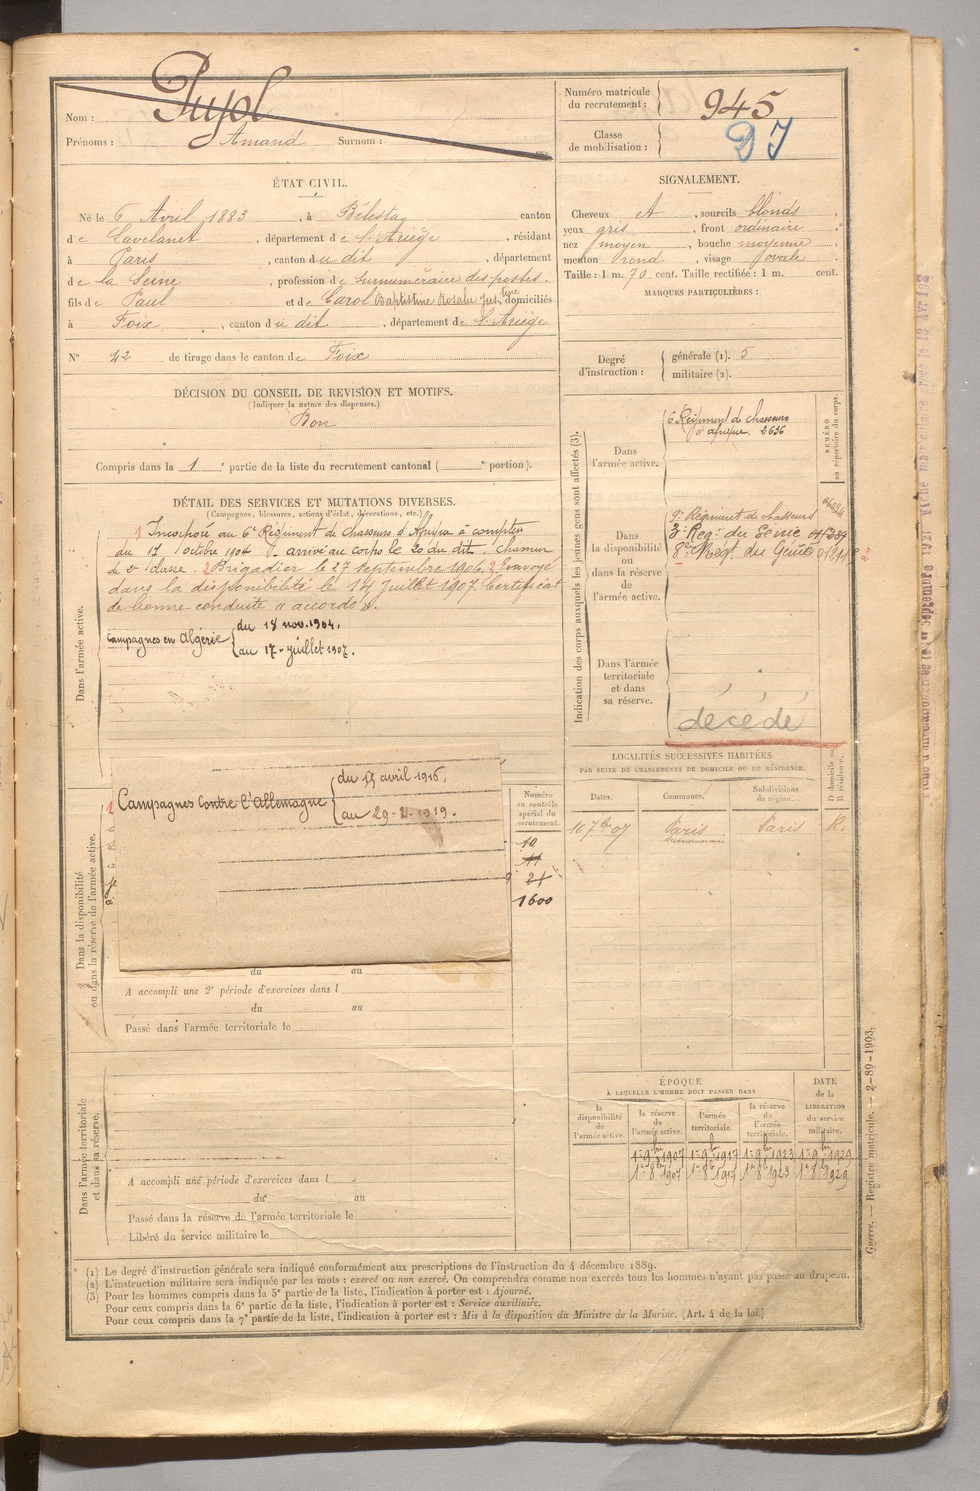 Nom : Pujol
Prénoms : Amand Surnom :
Numéro matricule du recrutement : 945
Classe de mobilisation :
ÉTAT CIVIL.
Né le 6 Avril 1883, à Bélesta canton
de Lavelanet, département de l'Ariège, résidant
à Paris, canton du dit, département
de la Seine, profession de surnuméraire des postes.
fils de Paul et de Carol Baptistine Rosalie domiciliés
à Foix, canton du dit, département de l'Ariège
N° 42 de tirage dans le canton de Foix
SIGNALEMENT.
Cheveux et, sourcils blonds,
yeux gris, front ordinaire,
nez moyen, bouche moyenne
menton rond, visage ovale.
Taille : 1 m. 70 cent. Taille rectifiée : 1 m. cent.
MARQUES PARTICULIÈRES :
Degré d'instruction : générale (1). 5
militaire (2).
DÉCISION DU CONSEIL DE REVISION ET MOTIFS.
(Indiquer la nature des dispenses.)
Bon
Compris dans la 1e partie de la liste du recrutement cantonal (e portion).
DÉTAIL DES SERVICES ET MUTATIONS DIVERSES.
(Campagnes, blessures, actions d'éclat, décorations, etc.)
Dans l'armée active.
1 Incorporé au 6e Régiment de chasseurs d'Afrique à compter
du 17 octobre 1904 arrivé au corps le 20 du dit. Chasseur
de 2e classe. 2 Brigadier le 27 septembre 1906. 2 Envoyé
dans la disponibilité le 14 Juillet 1907. Certificat
de bonne conduite « accordé ».
Campagnes en Algérie du 18 nov. 1904.
au 17 juillet 1907.
Dans la disponibilité ou dans la réserve de l'armée active.
Campagnes contre l'Allemagne du 15 avril 1916.
au 29-2-1919.
du au
A accompli une 2e période d'exercices dans l
du au
Passé dans l'armée territoriale le
Dans l'armée territoriale et dans sa réserve.
A accompli une période d'exercices dans l
du au
Passé dans la réserve de l'armée territoriale le
Libéré du service militaire le
Numéro au contrôle spécial du recrutement.
10
11
21
1600
Indication des corps auxquels les jeunes gens sont affectés (3).
NUMÉRO au répertoire du corps.
Dans l'armée active.
6 Régiment de chasseurs
d'afrique. 2636
Dans la disponibilité ou dans la réserve de l'armée active.
9e Régiment de chasseurs
3e Reg. du Génie
8e Regt. du Génie
Dans l'armée territoriale et dans sa réserve.
décédé
LOCALITÉS SUCCESSIVES HABITÉES
PAR SUITE DE CHANGEMENTS DE DOMICILE OU DE RÉSIDENCE.
Dates. Communes. Subdivisions de région. D domicile ou R résidence.
16 7bre 07 Paris Paris R.
ÉPOQUE
À LAQUELLE L'HOMME DOIT PASSER DANS
DATE de la LIBÉRATION du service militaire.
la disponibilité de l'armée active.
la réserve de l'armée active.
l'armée territoriale.
la réserve de l'armée territoriale.
1er 9bre 1907 1er 9bre 1917 1er 9bre 1923 1er 9bre 1929
1er 8bre 1907 1er 8bre 1917 1er 8bre 1923 1er 8bre 1929
(1) Le degré d'instruction générale sera indiqué conformément aux prescriptions de l'instruction du 4 décembre 1889.
(2) L'instruction militaire sera indiquée par les mots : exercé ou non exercé. On comprendra comme non exercés tous les hommes n'ayant pas passé au drapeau.
(3) Pour les hommes compris dans la 5e partie de la liste, l'indication à porter est : Ajourné.
Pour ceux compris dans la 6e partie de la liste, l'indication à porter est : Service auxiliaire.
Pour ceux compris dans la 7e partie de la liste, l'indication à porter est : Mis à la disposition du Ministre de la Marine. (Art. 4 de la loi.)
Guerre. — Registre matricule. — 2-89-1903.